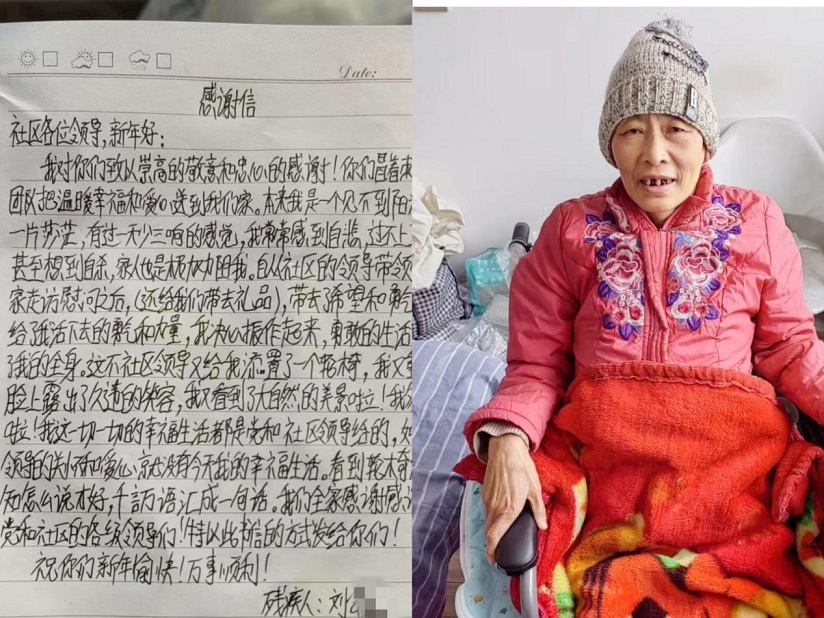 Date:
感谢信
社区各位领导,新年好:
我对你们致以崇高的敬意和忠心的感谢!你们冒着
团队把温暖幸福和爱心送到我们家。本来我是一个见不到阳
一片茫,有过一天少三晌的感觉,我常常感到自悲,过不上
甚至想到自杀,家人也是极力阻我。自从社区的领导带领
家走访慰问之后,(还给我们带去礼品),带去了希望和勇
给了我活下去的勇和力量,我决心振作起来,勇敢的生活
了我的全身。这不社区领导又给我添置了一个轮椅,我又
脸上露出了久违的笑容,我又看到了大自然的美景啦!我
啦!我这一切一切的幸福生活都是党和社区领导给的,如
领导的关怀和爱心,就没有今天我的幸福生活。看到轮椅
知怎么说才好,千言万语汇成一句话。我们全家感谢感
党和社区的各级领导们!特以此书信的方式发给你们!
祝你们新年愉快!万事顺利!
残疾人:刘